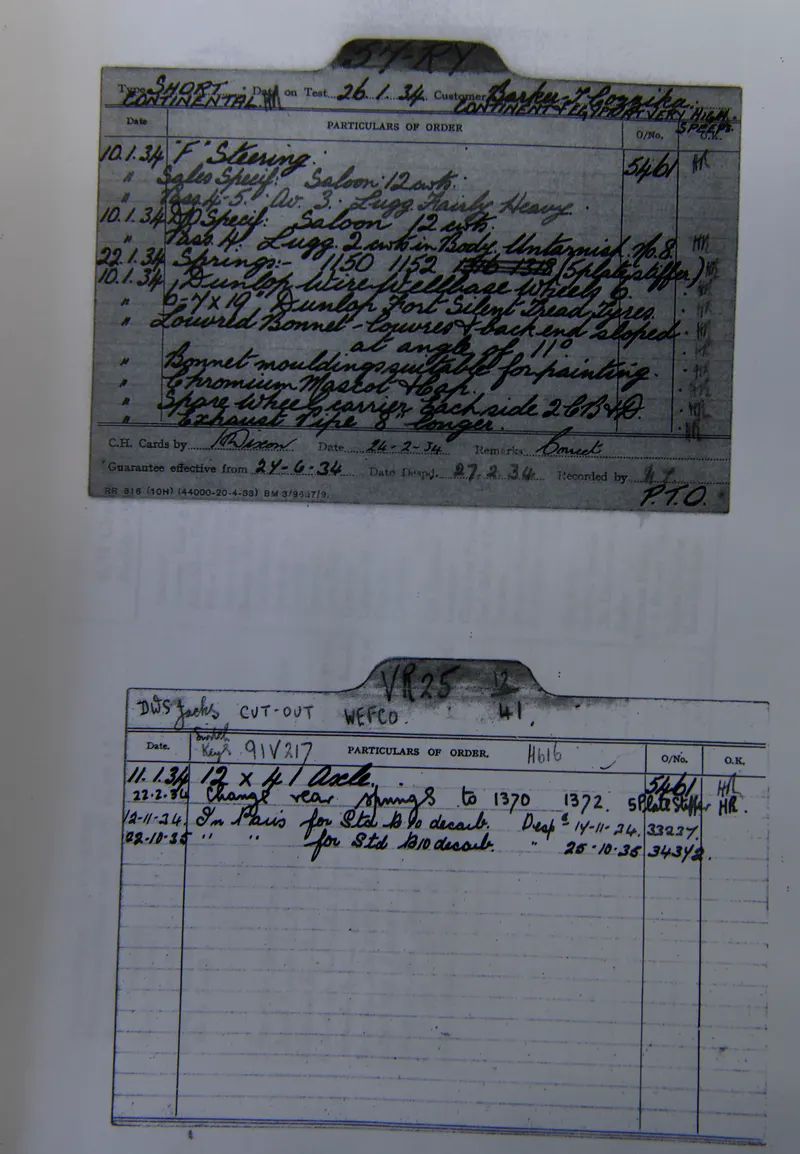 57-RY
Type SHORT Date on Test 26.1.34. Customer Barker. J. Coznika.
CONTINENTAL HR CONTINENT & EGYPT AT VERY HIGH SPEEDS.
Date PARTICULARS OF ORDER O/No. O.K.
10.1.34 "F" Steering. 5461 HR
" Sales Specif: Saloon 12 cwts.
" Pass 4-5. Av. 3. Lugg. Fairly Heavy.
10.1.34 D/O Specif: Saloon 12 cwts.
" Pass. 4. Lugg. 2 cwts in Body. HR
22.1.34 Springs:- 1150 1152 (5 plate stiffer) HR
10.1.34 Dunlop Wire Wellbase Wheels 6.
" 6-7 x 19" Dunlop Fort Silent Tread Tyres.
" Louvred Bonnet - louvres & back end sloped
at angle of 11°
" Bonnet mouldings suitable for painting.
" Chromium Mascot & Cap.
" Spare wheel carrier Each side 2 C B & D.
" Exhaust Pipe 8" longer.
C.H. Cards by Dixon Date 24-2-34 Remarks Correct
Guarantee effective from 24-6-34 Date Despd. 27.2.34. Recorded by
RR 316 (10H) (44000-20-4-33) BM 3/9637/9.
P.T.O.
VR25 12/41.
DWS Jacks CUT-OUT WEFCO.
Switch
Date. Keys 91V217 PARTICULARS OF ORDER. H616 O/No. O.K.
11.1.34 12 x 41 Axle. 5461 HR
22.2.34 Change rear springs to 1370 1372. 5 Plate Stiffer HR.
12-11-34. In Paris for Std B10 decarb. Desp d 14-11-34. 33227.
22-10-35 " " for Std B10 decarb. " 25-10-35 34342.